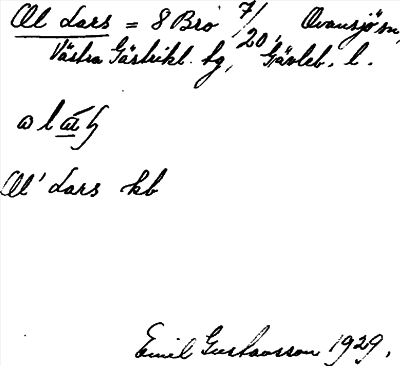 Al Lars = 8 Bro 7/20, Ovansjö sn,
Västra Gästrikl. hg, Gävleb. l.
Al' Lars kb
Emil Gustavsson 1929.